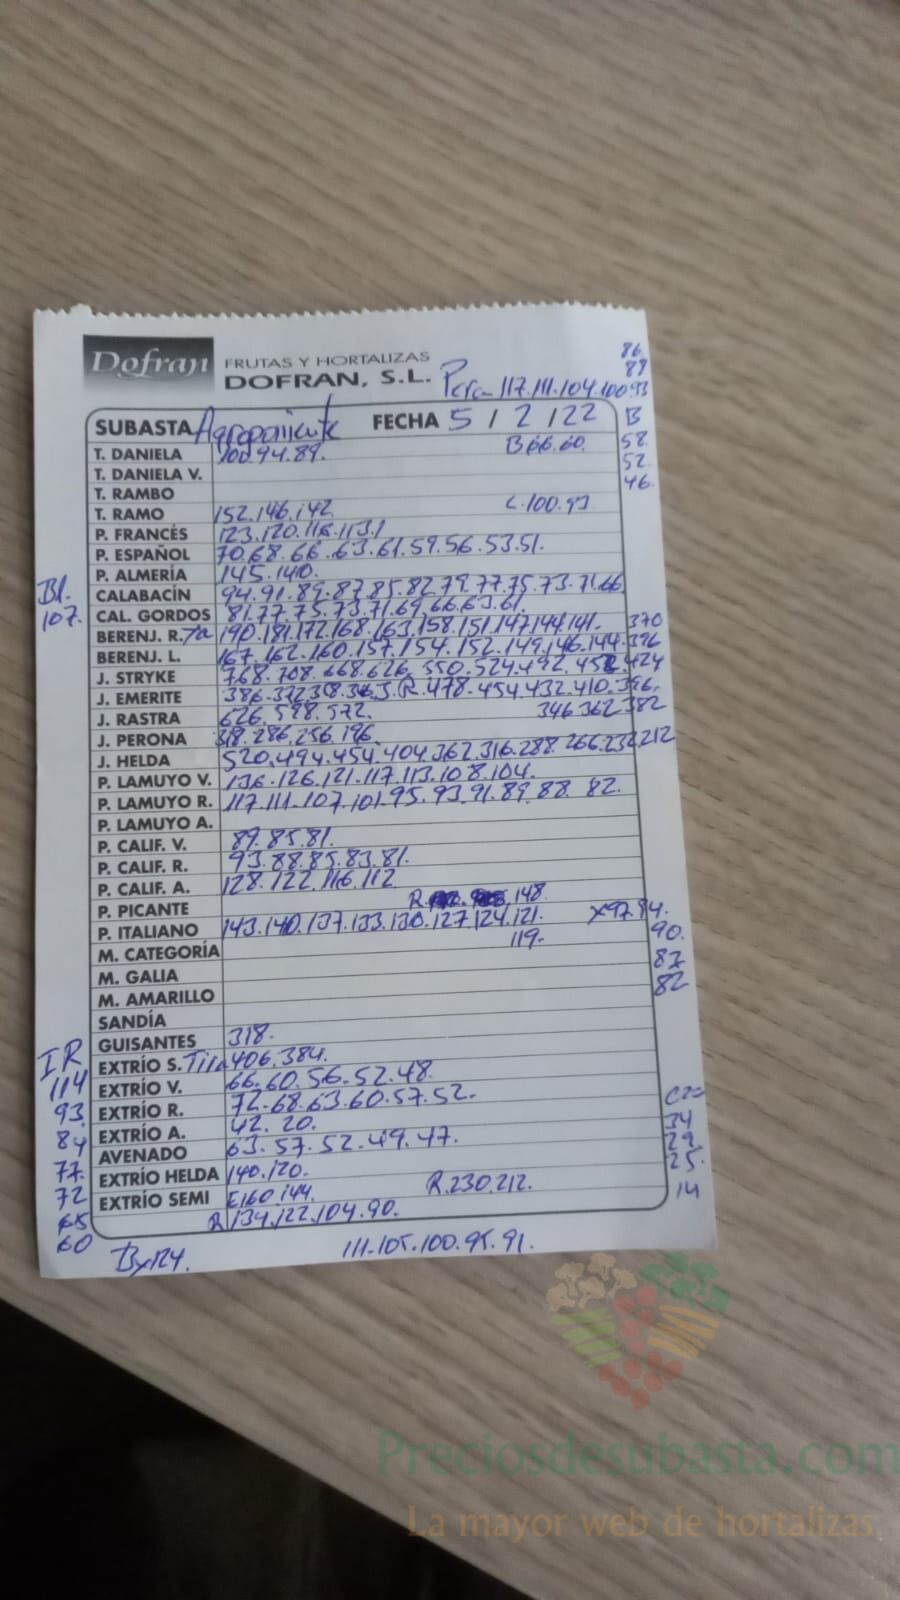 Dofran FRUTAS Y HORTALIZAS
DOFRAN, S.L. Pera 117.111.104.100.93
86
89
SUBASTA Agroponiente FECHA 5 / 2 / 22 B
T. DANIELA 100.94.89. B66.60. 58.
T. DANIELA V. 52.
T. RAMBO 46.
T. RAMO 152.146.142 C.100.93
P. FRANCÉS 123.120.116.113.1
P. ESPAÑOL 70.68.66.63.61.59.56.53.51.
P. ALMERÍA 145.140.
Bl. CALABACÍN 94.91.89.87.85.82.79.77.75.73.71.66
107. CAL. GORDOS 81.77.75.73.71.69.66.63.61.
BERENJ. R. 190.181.172.168.163.158.151.147.144.141. 370
BERENJ. L. 167.162.160.157.154.152.149.146.144. 396
J. STRYKE 768.708.668.626.550.524.492.452. 424
J. EMERITE 386.372. R.478.454.432.410.396.
J. RASTRA 626.598.572. 346 362 382
J. PERONA 318.286.256.196.
J. HELDA 520.494.454.404.362.316.288.266.232.212
P. LAMUYO V. 136.126.121.117.113.108.104.
P. LAMUYO R. 117.111.107.101.95.93.91.89.88. 82.
P. LAMUYO A.
P. CALIF. V. 89.85.81.
P. CALIF. R. 93.88.85.83.81.
P. CALIF. A. 128.122.116.112
P. PICANTE R. 148.
P. ITALIANO 143.140.137.133.130.127.124.121. x97.94.
119. 90.
M. CATEGORÍA
87
M. GALIA
82
M. AMARILLO
SANDÍA
GUISANTES 318.
IR EXTRÍO S. 406.384.
114 EXTRÍO V. 66.60.56.52.48.
93. EXTRÍO R. 72.68.63.60.57.52.
84 EXTRÍO A. 42. 20. 34
77. AVENADO 63.57.52.49.47. 29.
72 EXTRÍO HELDA 140.120. 25.
65 EXTRÍO SEMI E160.144. R.230.212. 14
60 R134.122.104.90.
111.105.100.95.91.
Preciosdesubasta.com
La mayor web de hortalizas